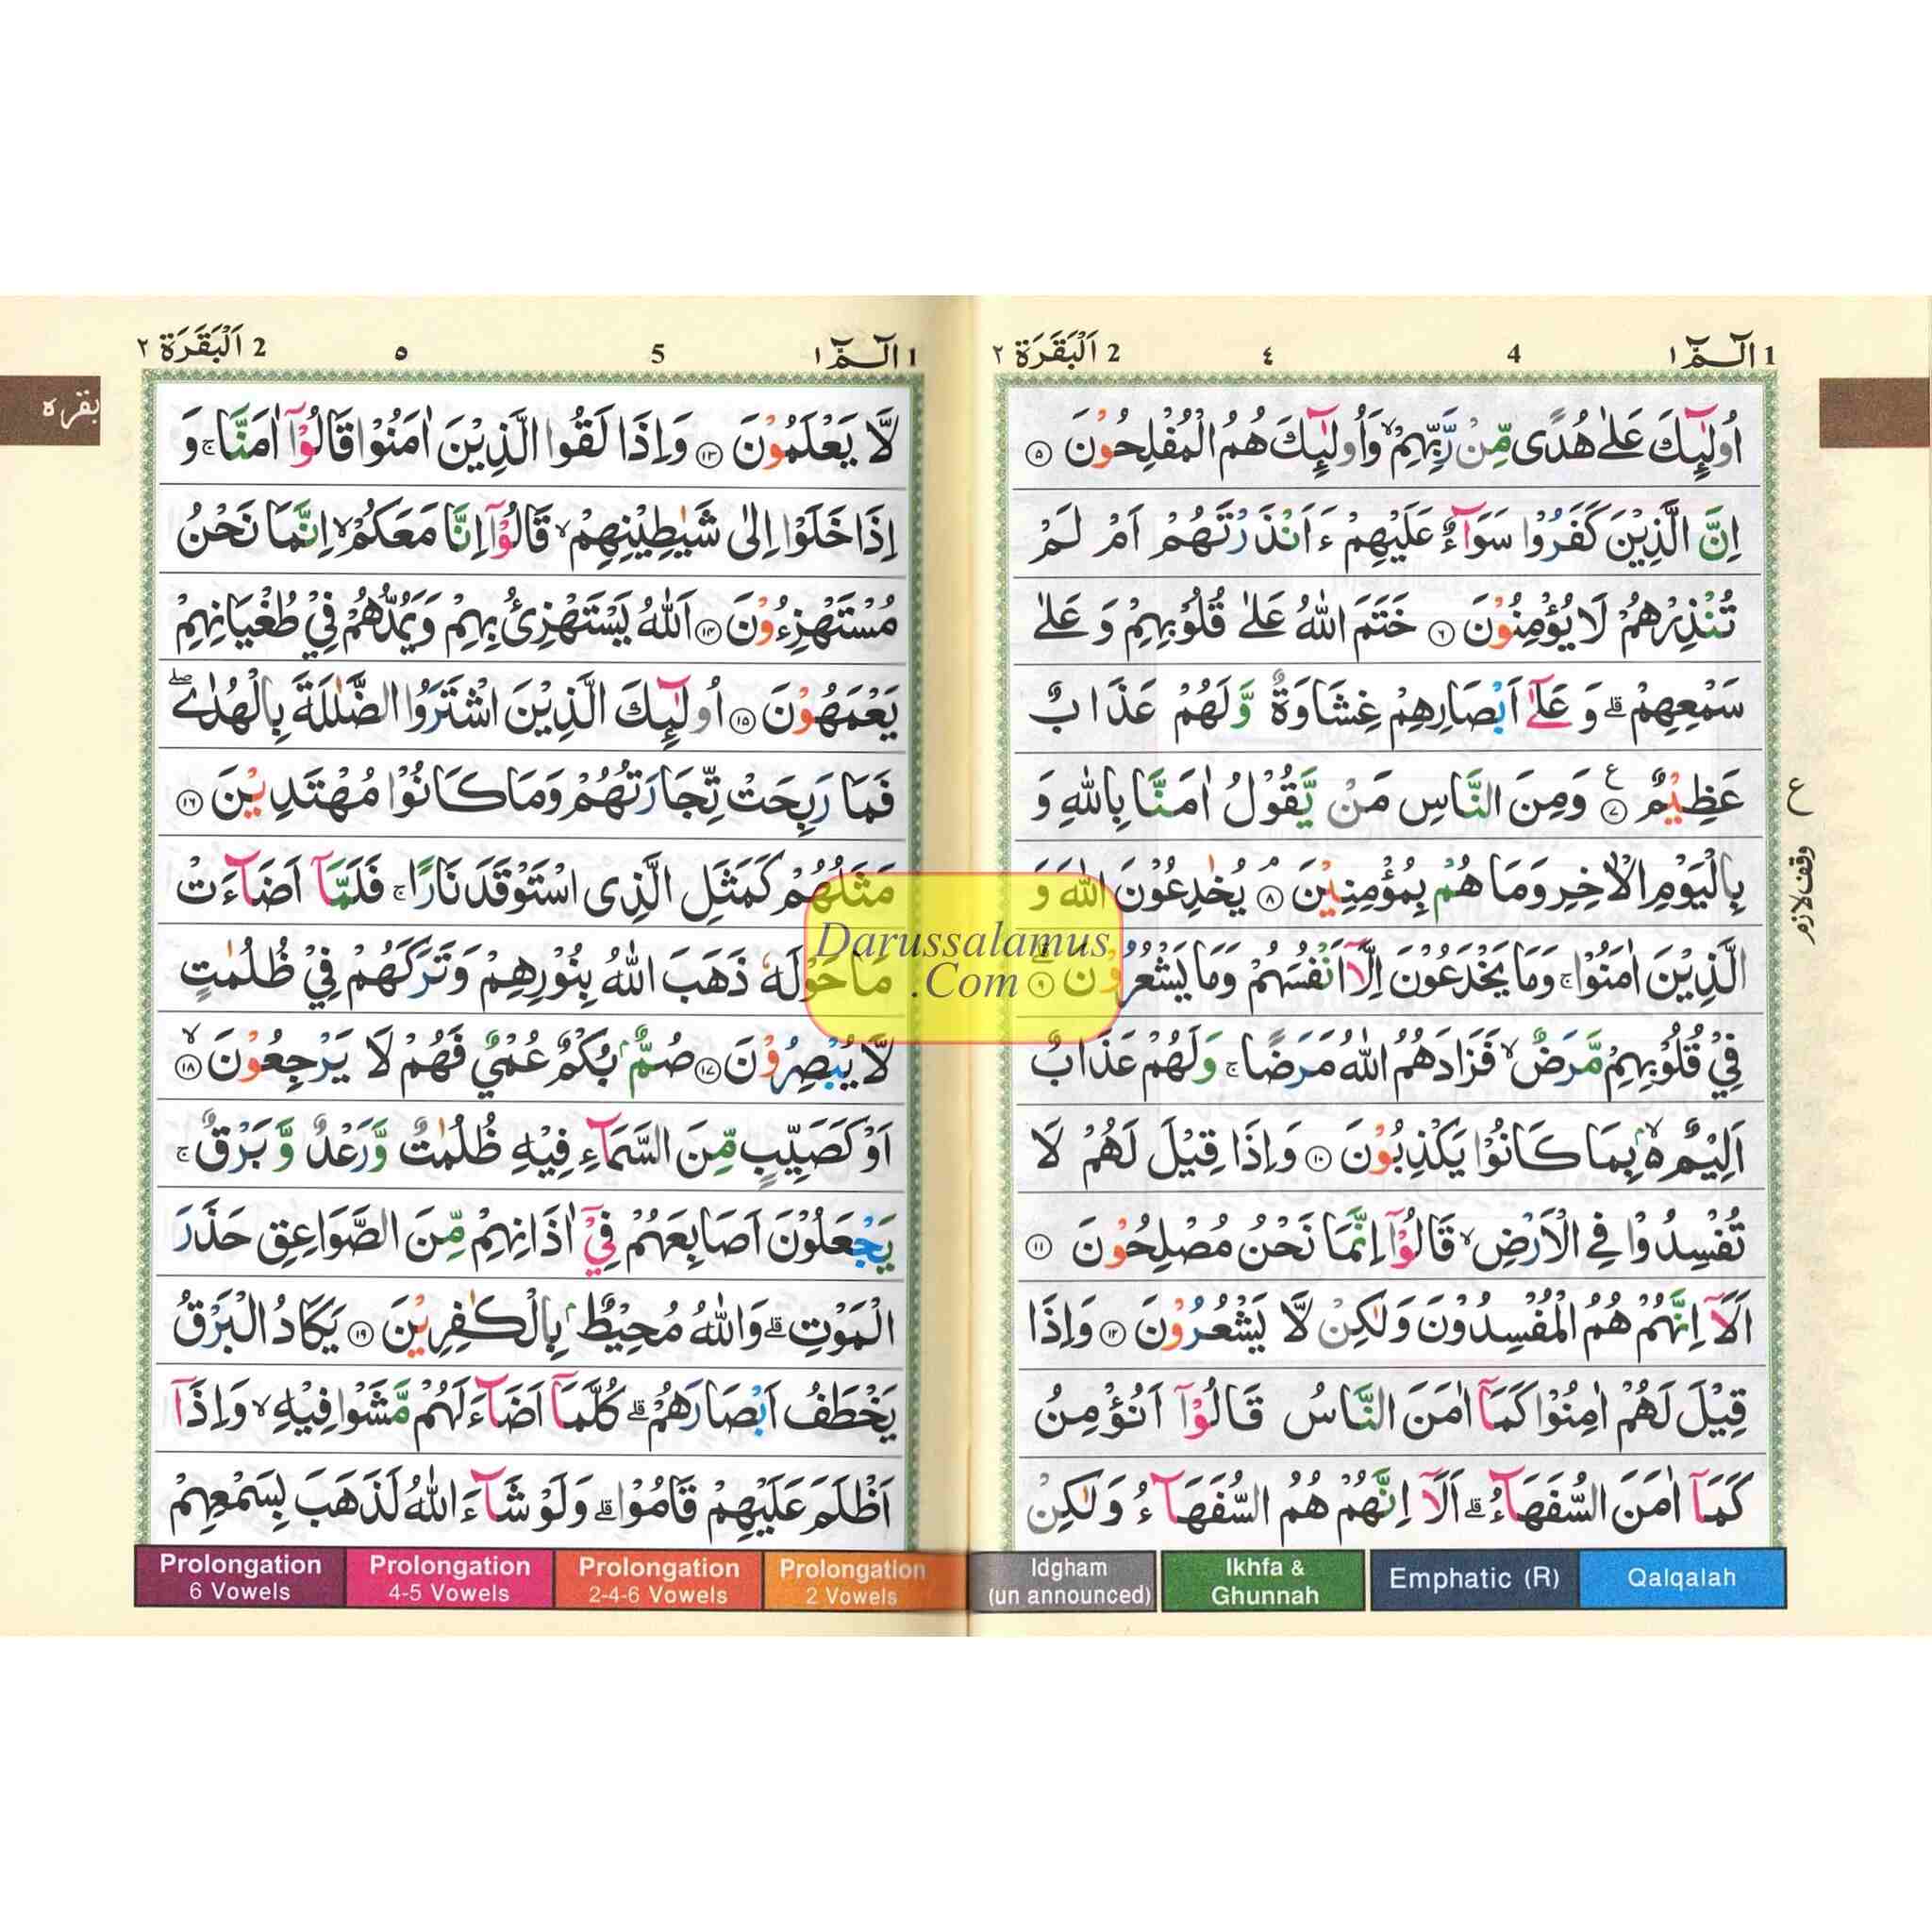 1 الٓـمّٓ ١ 4 ٤ 2 اَلْبَقَرَة ٢
اُولٰٓئِكَ عَلٰى هُدًى مِّنْ رَّبِّهِمْ ۙ وَاُولٰٓئِكَ هُمُ الْمُفْلِحُوْنَ ۵
اِنَّ الَّذِيْنَ كَفَرُوْا سَوَآءٌ عَلَيْهِمْ ءَاَنْذَرْتَهُمْ اَمْ لَمْ
تُنْذِرْهُمْ لَا يُؤْمِنُوْنَ ۶ خَتَمَ اللّٰهُ عَلٰى قُلُوْبِهِمْ وَ عَلٰى
سَمْعِهِمْ ؕ وَ عَلٰٓى اَبْصَارِهِمْ غِشَاوَةٌ وَّلَهُمْ عَذَابٌ
عَظِيْمٌ ۷ ع وَمِنَ النَّاسِ مَنْ يَّقُوْلُ اٰمَنَّا بِاللّٰهِ وَ
ع
بِالْيَوْمِ الْاٰخِرِ وَمَا هُمْ بِمُؤْمِنِيْنَ ۘ ۸ يُخٰدِعُوْنَ اللّٰهَ وَ
وقف لازم
الَّذِيْنَ اٰمَنُوْا ۚ وَمَا يَخْدَعُوْنَ اِلَّآ اَنْفُسَهُمْ وَمَا يَشْعُرُوْنَ ۹
فِيْ قُلُوْبِهِمْ مَّرَضٌ ۙ فَزَادَهُمُ اللّٰهُ مَرَضًا ۚ وَلَهُمْ عَذَابٌ
اَلِيْمٌ ۢ ۙ بِمَا كَانُوْا يَكْذِبُوْنَ ۱۰ وَاِذَا قِيْلَ لَهُمْ لَا
تُفْسِدُوْا فِي الْاَرْضِ ۙ قَالُوْٓا اِنَّمَا نَحْنُ مُصْلِحُوْنَ ۱۱
اَلَآ اِنَّهُمْ هُمُ الْمُفْسِدُوْنَ وَلٰكِنْ لَّا يَشْعُرُوْنَ ۱۲ وَاِذَا
قِيْلَ لَهُمْ اٰمِنُوْا كَمَآ اٰمَنَ النَّاسُ قَالُوْٓا اَنُؤْمِنُ
كَمَآ اٰمَنَ السُّفَهَآءُ ؕ اَلَآ اِنَّهُمْ هُمُ السُّفَهَآءُ وَلٰكِنْ
1 الٓـمّٓ ١ 5 ٥ 2 اَلْبَقَرَة ٢
بقره
لَّا يَعْلَمُوْنَ ۱۳ وَاِذَا لَقُوا الَّذِيْنَ اٰمَنُوْا قَالُوْٓا اٰمَنَّا ۚ وَ
اِذَا خَلَوْا اِلٰى شَيٰطِيْنِهِمْ ۙ قَالُوْٓا اِنَّا مَعَكُمْ ۙ اِنَّمَا نَحْنُ
مُسْتَهْزِءُوْنَ ۱۴ اَللّٰهُ يَسْتَهْزِئُ بِهِمْ وَيَمُدُّهُمْ فِيْ طُغْيَانِهِمْ
يَعْمَهُوْنَ ۱۵ اُولٰٓئِكَ الَّذِيْنَ اشْتَرَوُا الضَّلٰلَةَ بِالْهُدٰى ۖ
فَمَا رَبِحَتْ تِّجَارَتُهُمْ وَمَا كَانُوْا مُهْتَدِيْنَ ۱۶
مَثَلُهُمْ كَمَثَلِ الَّذِى اسْتَوْقَدَ نَارًا ۚ فَلَمَّآ اَضَآءَتْ
مَا حَوْلَهٗ ذَهَبَ اللّٰهُ بِنُوْرِهِمْ وَتَرَكَهُمْ فِيْ ظُلُمٰتٍ
لَّا يُبْصِرُوْنَ ۱۷ صُمٌّ ۢ بُكْمٌ عُمْيٌ فَهُمْ لَا يَرْجِعُوْنَ ۙ ۱۸
اَوْ كَصَيِّبٍ مِّنَ السَّمَآءِ فِيْهِ ظُلُمٰتٌ وَّرَعْدٌ وَّبَرْقٌ ۚ
يَجْعَلُوْنَ اَصَابِعَهُمْ فِيْٓ اٰذَانِهِمْ مِّنَ الصَّوَاعِقِ حَذَرَ
الْمَوْتِ ؕ وَاللّٰهُ مُحِيْطٌ ۢ بِالْكٰفِرِيْنَ ۱۹ يَكَادُ الْبَرْقُ
يَخْطَفُ اَبْصَارَهُمْ ؕ كُلَّمَآ اَضَآءَ لَهُمْ مَّشَوْا فِيْهِ ۙ وَاِذَآ
اَظْلَمَ عَلَيْهِمْ قَامُوْا ؕ وَلَوْ شَآءَ اللّٰهُ لَذَهَبَ بِسَمْعِهِمْ
Darussalamus
.Com
Prolongation
6 Vowels
Prolongation
4-5 Vowels
Prolongation
2-4-6 Vowels
Prolongation
2 Vowels
Idgham
(un announced)
Ikhfa &
Ghunnah
Emphatic (R)
Qalqalah